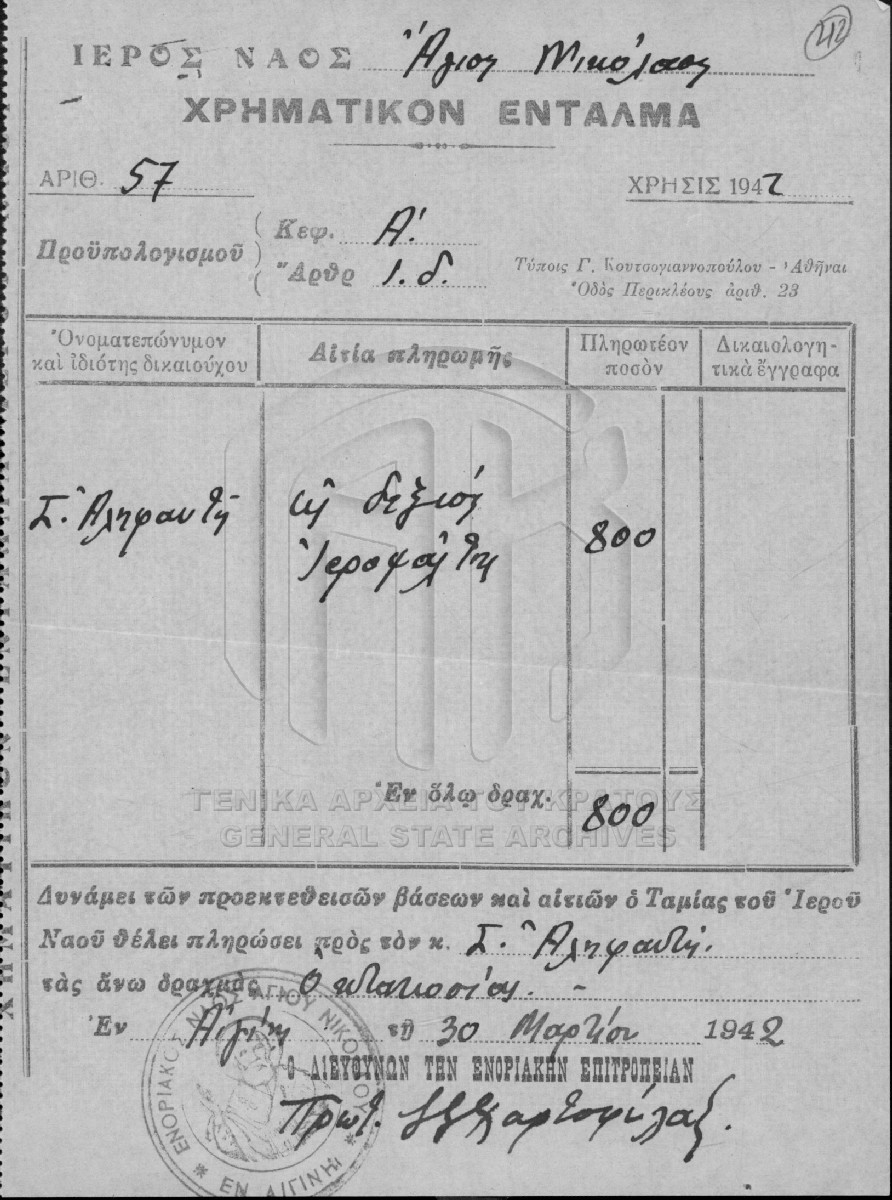 42
ΙΕΡΟΣ ΝΑΟΣ Ἅγιος Νικόλαος
ΧΡΗΜΑΤΙΚΟΝ ΕΝΤΑΛΜΑ
ΑΡΙΘ. 57 ΧΡΗΣΙΣ 1942
Προϋπολογισμοῦ
Κεφ. Α΄.
Ἄρθρ 1. δ.
Τύποις Γ. Κουτσογιαννοπούλου - Ἀθῆναι
Ὁδὸς Περικλέους ἀριθ. 23
Ὀνοματεπώνυμον καὶ ἰδιότης δικαιούχου
Αἰτία πληρωμῆς
Πληρωτέον ποσὸν
Δικαιολογητικὰ ἔγγραφα
Σ. Ἀληφαντῆ
δεξιός
Ἱεροψάλτης
800
Ἐν ὅλῳ δραχ. 800
ΓΕΝΙΚΑ ΑΡΧΕΙΑ ΤΟΥ ΚΡΑΤΟΥΣ
GENERAL STATE ARCHIVES
Δυνάμει τῶν προεκτεθεισῶν βάσεων καὶ αἰτιῶν ὁ Ταμίας τοῦ Ἱεροῦ
Ναοῦ θέλει πληρώσει πρὸς τὸν κ. Σ. Ἀληφαντῆ.
τὰς ἄνω δραχμὰς Ὀκτακοσίας. -
Ἐν Αἰγίνῃ τῇ 30 Μαρτίου 1942
Ο ΔΙΕΥΘΥΝΩΝ ΤΗΝ ΕΝΟΡΙΑΚΗΝ ΕΠΙΤΡΟΠΕΙΑΝ
Πρωτ. Χαρτοφύλαξ.
ΕΝΟΡΙΑΚΟΣ ΝΑΟΣ ΑΓΙΟΥ ΝΙΚΟΛΑΟΥ
* ΕΝ ΑΙΓΙΝΗ *